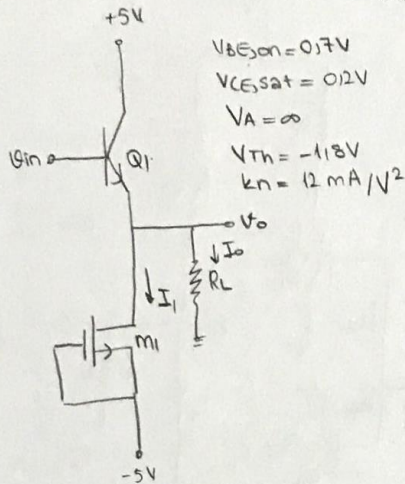 +5V
VBE,on = 0,7V
VCE,sat = 0,2V
VA = ∞
VTh = -1,8V
kn = 12 mA/V²
Vin
Q1
Vo
Io
RL
I1
M1
-5V